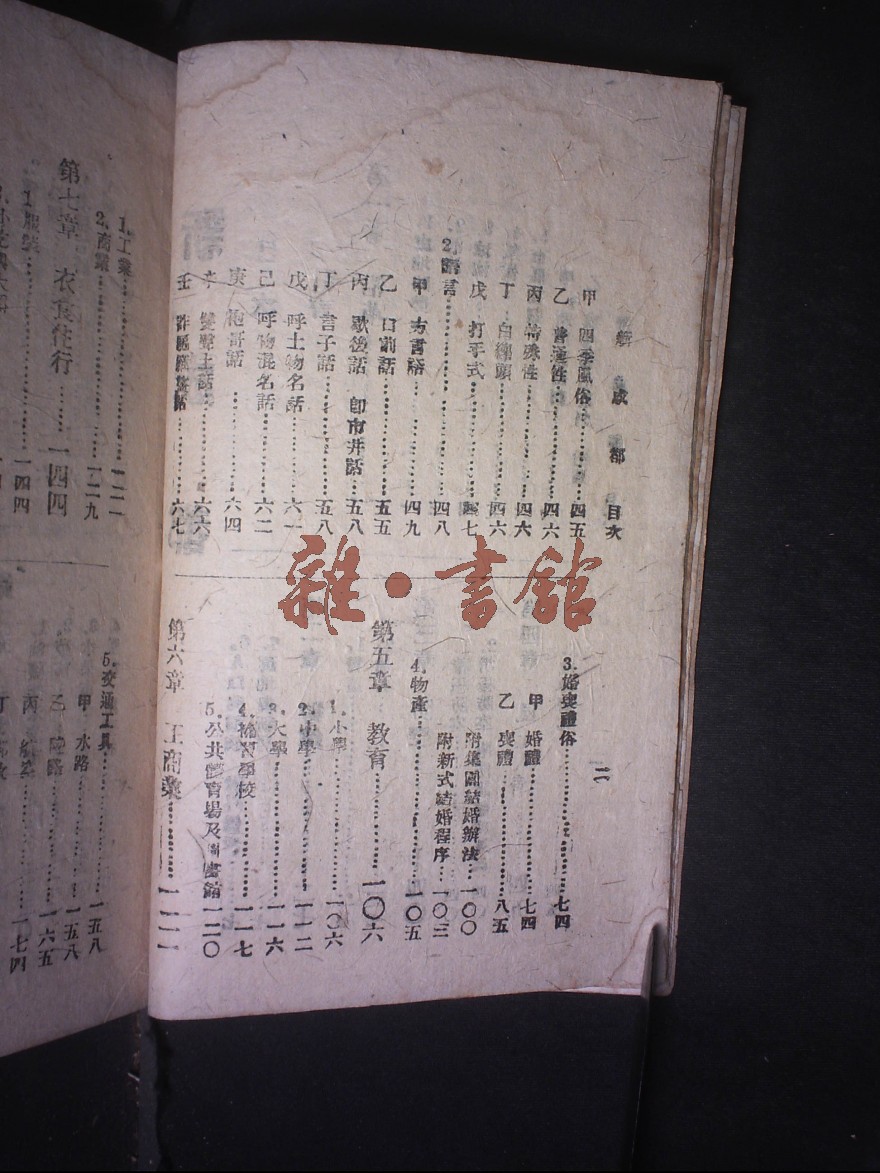 新成都 目次
二
甲 四季風俗……四五
乙 普遍性……四六
丙 特殊性……四六
丁 白纏頭……四六
戊 打牙式……四七
2.語言……四八
甲 方言語……四九
乙 口前話……五五
丙 歇後話 即市井話…五八
丁 言子話……五八
戊 呼土物名話……六一
己 呼物混名話……六二
庚 袍哥話……六四
辛 變聲土話……六六
壬 詐騙隱語話……六七
3.婚喪禮俗……七四
甲 婚禮……七四
乙 喪禮……八五
附集團結婚辦法…一〇〇
附新式結婚程序…一〇三
4.物產……一〇五
第五章 教育……一〇六
1.小學……一〇六
2.中學……一一二
3.大學……一一六
4.補習學校……一一七
5.公共體育場及圖書館一二〇
第六章 工商業……一二一
1.工業……一二一
2.商業……一二九
第七章 衣食住行……一四四
1.服裝……一四四
5.交通工具……一五八
甲 水路……一五八
乙 陸路……一六五
丙 航空……一七四
雜·書館